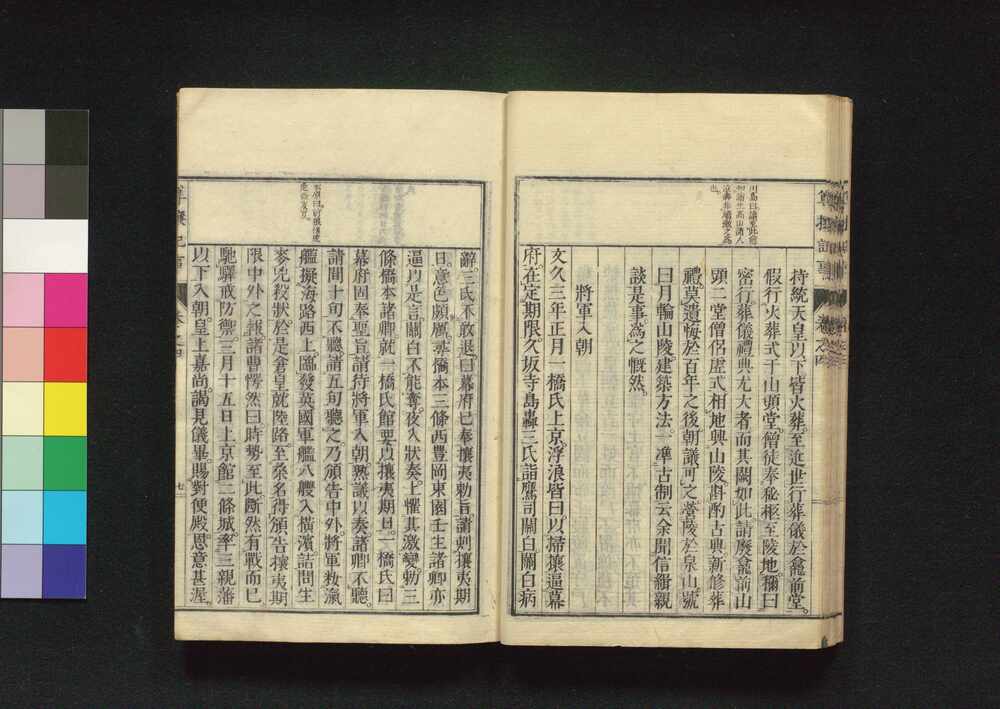 尊攘記事
卷之四
持統天皇以下皆火葬。至近世行葬儀於龕前堂。
假行火葬式于山頭堂。僧徒奉秘柩至陵地。稱曰
密行葬儀。禮典尤大者而其闕如此。請廢龕前山
頭二堂僧侶虛式。相地興山陵。斟酌古典新修葬
禮。莫遺悔於百年之後。朝議可之。營陵於泉山。號
曰月輪山陵。建築方法一準古制云。余聞信緝親
談是事。爲之慨然。
將軍入朝
文久三年正月。一橋氏上京。浮浪皆曰以掃攘逼幕
府。在定期限。久坂寺島轟三氏詣鷹司關白。關白病
辭。三氏不敢退。曰幕府已奉攘夷勅旨。請刺攘夷期
日。意色頗厲。尋橋本三條西豐岡東園壬生諸卿亦
逼以是言。關白不能奪。夜入狀奏。上懼其激變。勅三
條橋本諸卿。就一橋氏館。要以攘夷期日。一橋氏曰
幕府固奉聖旨。請待將軍入朝。熟議以奏。諸卿不聽。
請間十旬不聽。請五旬聽之。乃頒告中外。將軍敉滊
艦擬海路西上。臨發英國軍艦八艘入橫濱。詰問生
麥兇殺狀。於是倉皇就陸路。至桑名得頒告攘夷期
限中外之報。諸曹愕然曰。時勢至此。斷然有戰而已。
馳驛戒防禦。三月十五日上京。館二條城。率三親藩
以下入朝。皇上嘉尚。謁見儀畢。賜對便殿。恩意甚渥。
尊攘記事
卷之四
七